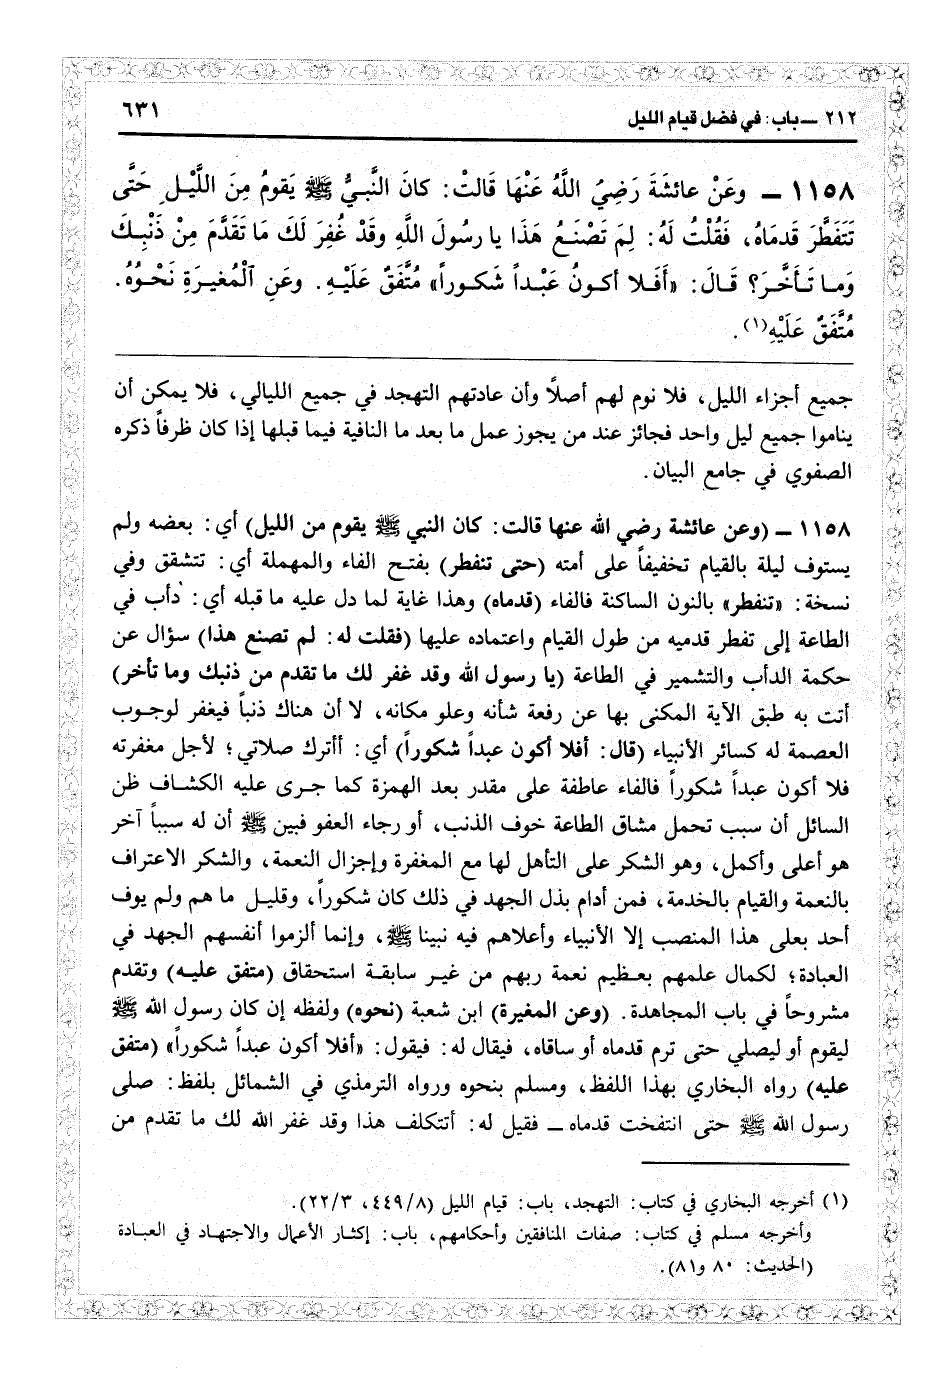 ٢١٢ ـ باب: في فضل قيام الليل
٦٣١
١١٥٨ ـ وعَنْ عائشَةَ رَضِيَ اللَّهُ عَنْهَا قَالَتْ: كانَ النَّبيُّ ﷺ يَقومُ مِنَ اللَّيْلِ حَتَّى
تَتَفَطَّرَ قَدمَاهُ، فَقُلْتُ لَهُ: لِمَ تَصْنَعُ هَذَا يا رسُولَ اللَّهِ وقَدْ غُفِرَ لَكَ مَا تَقَدَّمَ مِنْ ذَنْبِكَ
وَمـا تَـأخَّـرَ؟ قَـالَ: «أَفَـلا أكـونُ عَبْـداً شَكـوراً» مُتَّفَقٌ عَلَيْهِ. وعَنِ الْمُغيرَةِ نَحْوُهُ.
مُتَّفَقٌ عَلَيْهِ(١).
جميع أجزاء الليل، فلا نوم لهم أصلاً وأن عادتهم التهجد في جميع الليالي، فلا يمكن أن
يناموا جميع ليل واحد فجائز عند من يجوز عمل ما بعد ما النافية فيما قبلها إذا كان ظرفاً ذكره
الصفوي في جامع البيان.
١١٥٨ ـ (وعن عائشة رضي الله عنها قالت: كان النبي ﷺ يقوم من الليل) أي: بعضه ولم
يستوف ليلة بالقيام تخفيفاً على أمته (حتى تنفطر) بفتح الفاء والمهملة أي: تتشقق وفي
نسخة: «تنفطر» بالنون الساكنة فالفاء (قدماه) وهذا غاية لما دل عليه ما قبله أي: دأب في
الطاعة إلى تفطر قدميه من طول القيام واعتماده عليها (فقلت له: لم تصنع هذا) سؤال عن
حكمة الدأب والتشمير في الطاعة (يا رسول الله وقد غفر لك ما تقدم من ذنبك وما تأخر)
أتت به طبق الآية المكنى بها عن رفعة شأنه وعلو مكانه، لا أن هناك ذنباً فيغفر لوجوب
العصمة له كسائر الأنبياء (قال: أفلا أكون عبداً شكوراً) أي: أأترك صلاتي؛ لأجل مغفرته
فلا أكون عبداً شكوراً فالفاء عاطفة على مقدر بعد الهمزة كما جـرى عليه الكشاف ظن
السائل أن سبب تحمل مشاق الطاعة خوف الذنب، أو رجاء العفو فبين ﷺ أن له سبباً آخر
هو أعلى وأكمل، وهو الشكر على التأهل لها مع المغفرة وإجزال النعمة، والشكر الاعتراف
بالنعمة والقيام بالخدمة، فمن أدام بذل الجهد في ذلك كان شكوراً، وقليـل ما هم ولم يوف
أحد بعلى هذا المنصب إلا الأنبياء وأعلاهم فيه نبينا ﷺ، وإنما ألزموا أنفسهم الجهد في
العبادة؛ لكمال علمهم بعظيم نعمة ربهم من غير سابقة استحقاق (متفق عليـه) وتقدم
مشروحاً في باب المجاهدة. (وعن المغيرة) ابن شعبة (نحوه) ولفظه إن كان رسول الله ﷺ
ليقوم أو ليصلي حتى ترم قدماه أو ساقاه، فيقال له: فيقول: «أفلا أكون عبداً شكوراً» (متفق
عليه) رواه البخاري بهذا اللفظ، ومسلم بنحوه ورواه الترمذي في الشمائل بلفظ: صلى
رسول الله ﷺ حتى انتفخت قدماه ـ فقيل له: أتتكلف هذا وقد غفر الله لك ما تقدم من
(١) أخرجه البخاري في كتاب: التهجد، باب: قيام الليل (٤٤٩/٨، ٢٢/٣).
وأخرجه مسلم في كتاب: صفات المنافقين وأحكامهم، باب: إكثار الأعمال والاجتهـاد في العبـادة
(الحديث: ٨٠ و٨١).